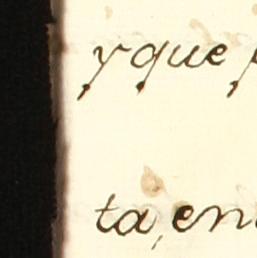 y que
ta, en